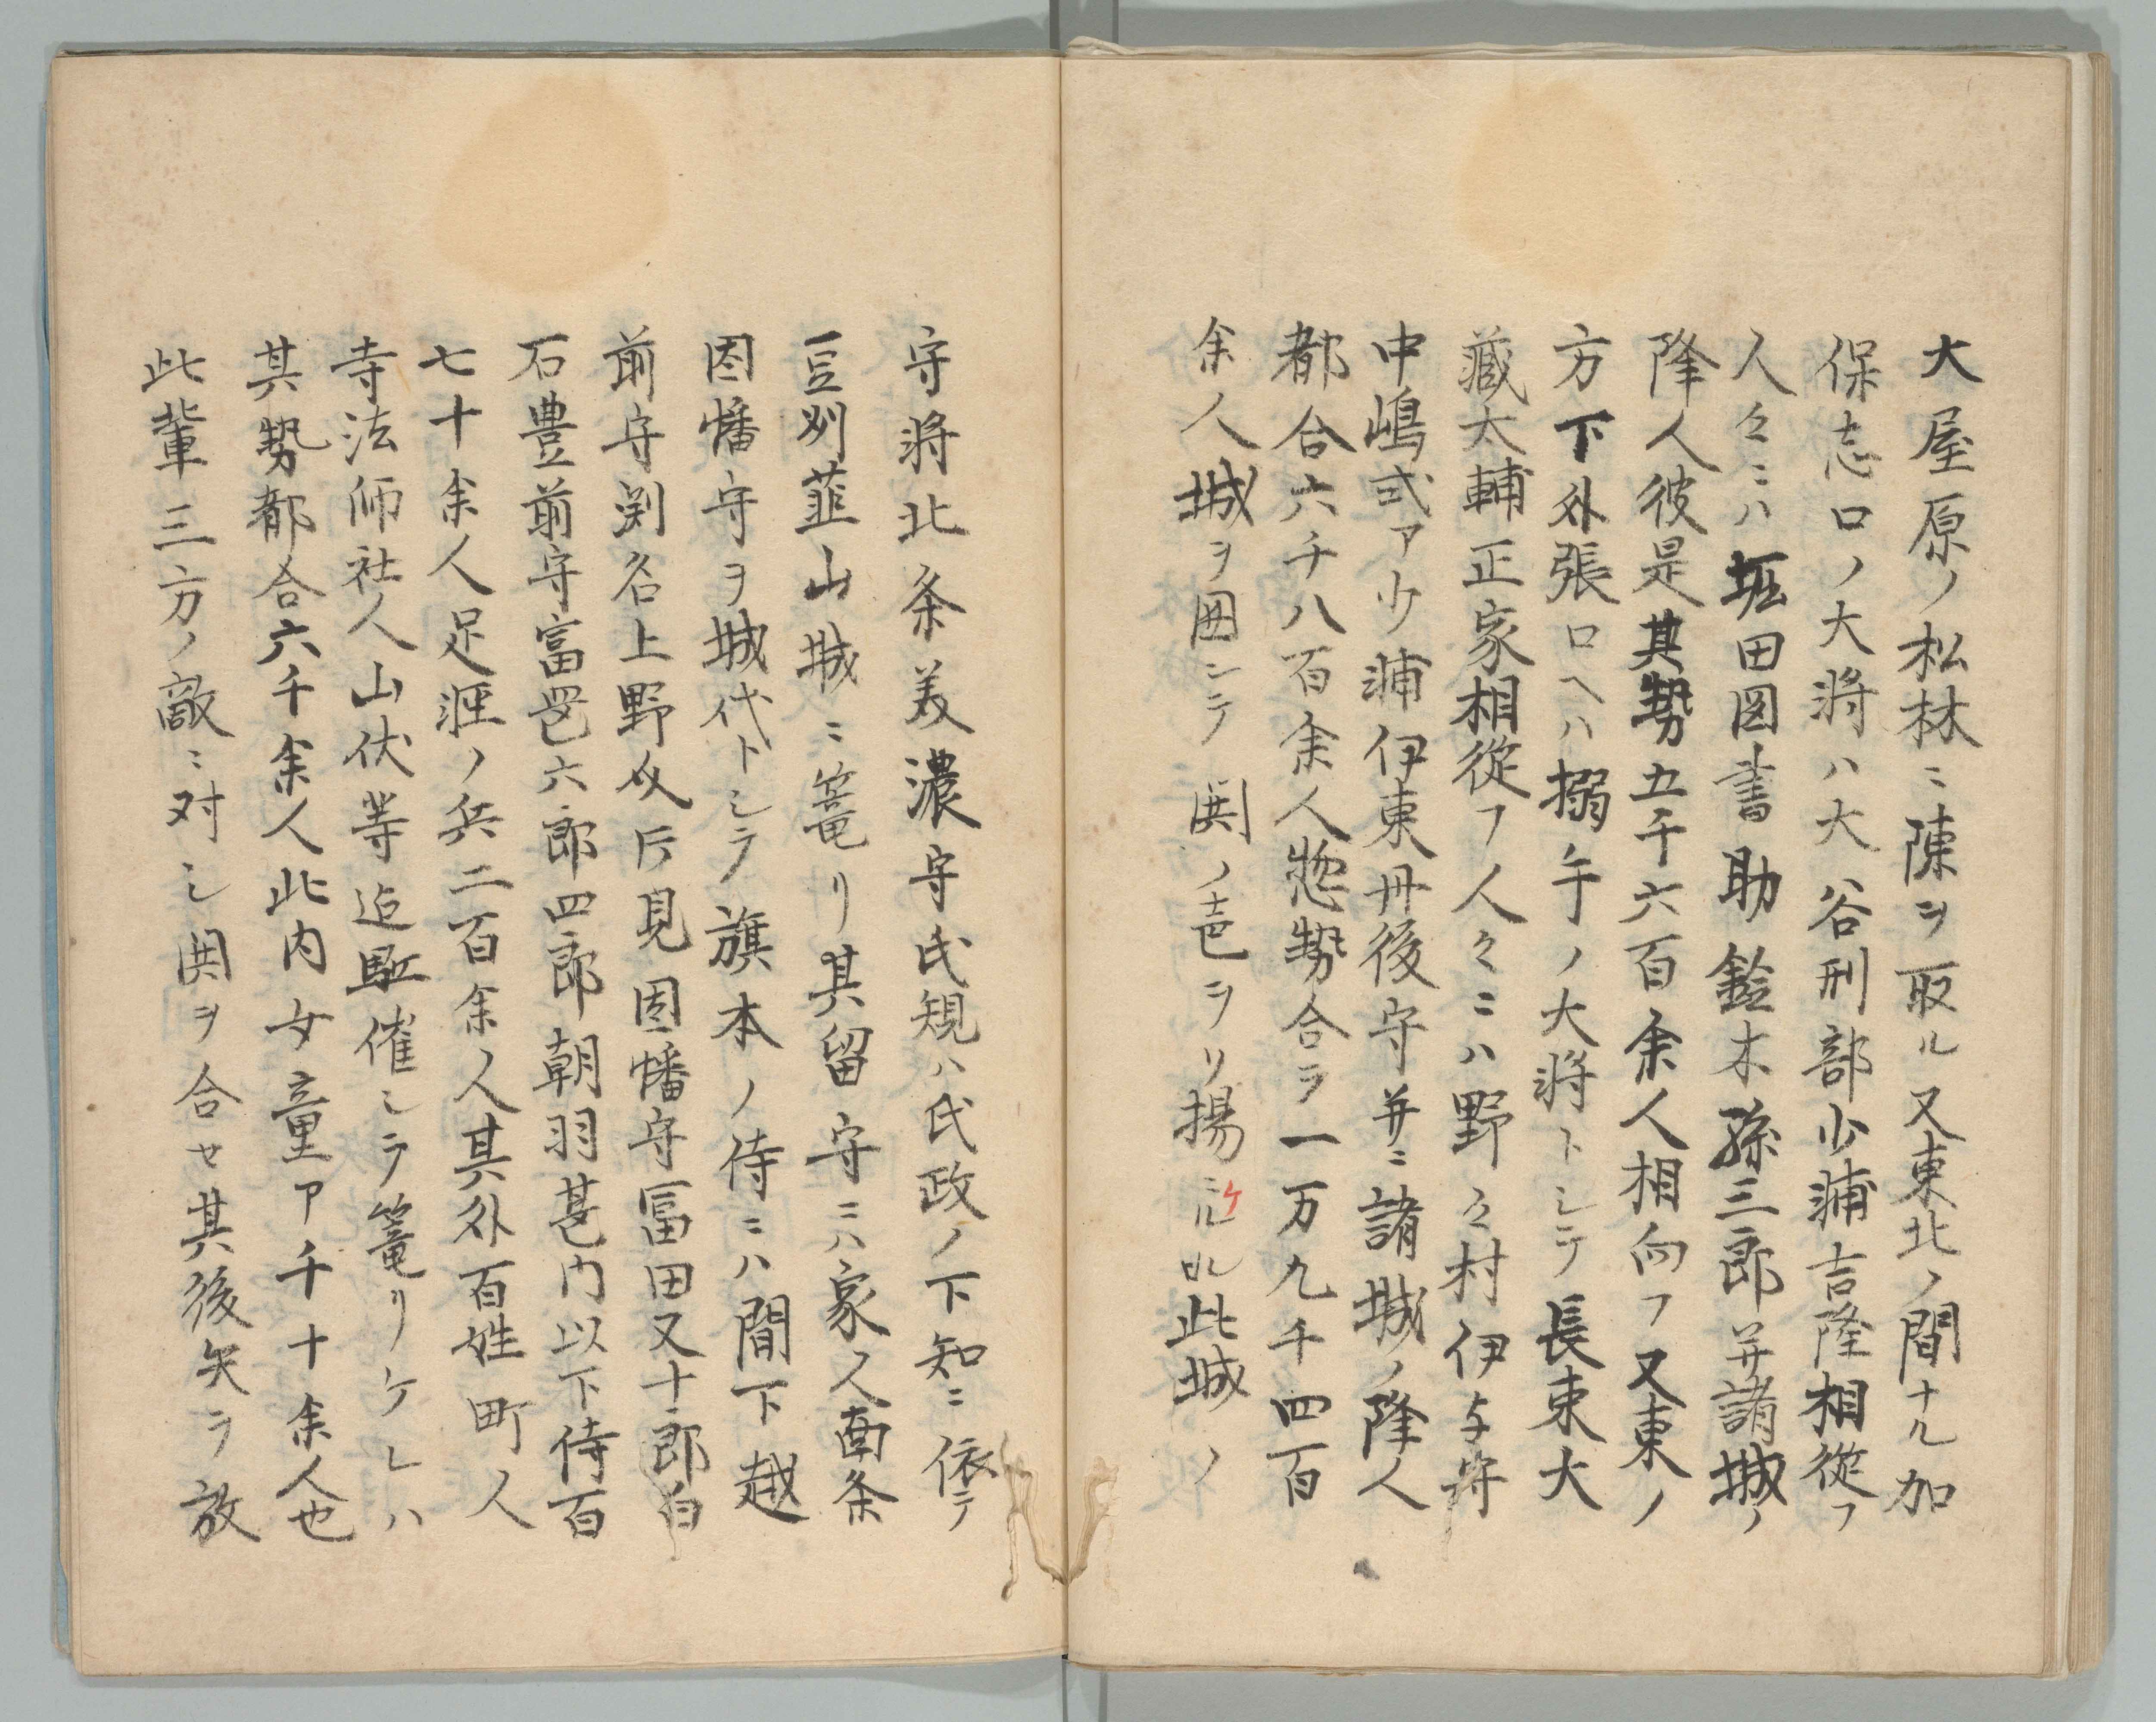 大屋原ノ松林ニ陳ヲ取ル又東北ノ間ナル加
保志口ノ大将ハ大谷刑部少浦吉隆相従フ
人々ニハ堀田図書助鈴木孫三郎并諸城ノ
降人彼是其勢五千六百余人相向フ又東ノ
方下外張口ヘハ搦手ノ大将トシテ長束大
蔵太輔正家相従フ人々ニハ野々村伊与守
中嶋式ア少浦伊東丹後守并ニ諸城ノ降人
都合六千八百余人惣勢合ラ一万九千四百
余人城ヲ囲シテ鬨ノ声ヲソ揚ニケル此城ノ
守将北条美濃守氏規ハ氏政ノ下知ニ依テ
豆州韮山城ニ篭リ其留守ニハ家人南条
因幡守ヲ城代トシラ旗本ノ侍ニハ間下越
前守渕名上野介片見因幡守冨田又十郎白
石豊前守富宮六郎四郎朝羽甚内以下侍百
七十余人足軽ノ兵二百余人其外百姓町人
寺法師社人山伏等迄駈催シラ篭リケレハ
其勢都合六千余人此内女童ア千十余人也
此輩三方ノ敵ニ対シ鬨ヲ合セ其後矢ヲ放